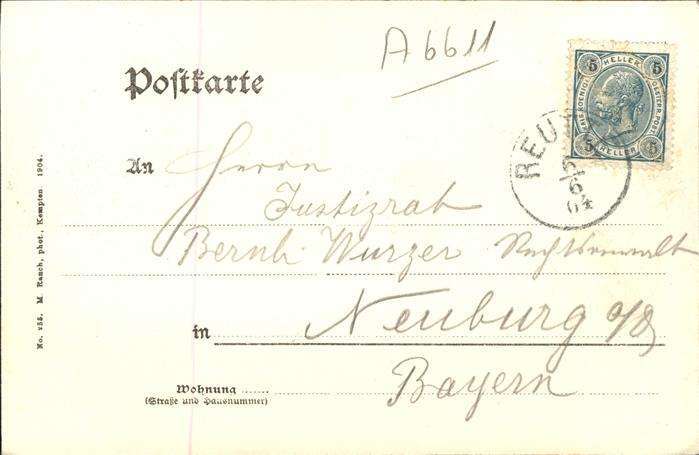 A6611
Postkarte
5 HELLER 5
KAIS. KOENIGL. OESTERR. POST.
5 HELLER 5
REU
5
6
04
An Herrn
Justizrat
Bernh. Wurzer Rechtsanwalt
in Neuburg a/D
Bayern
Wohnung
(Straße und Hausnummer)
No. 255. M. Rauch, phot., Kempten 1904.